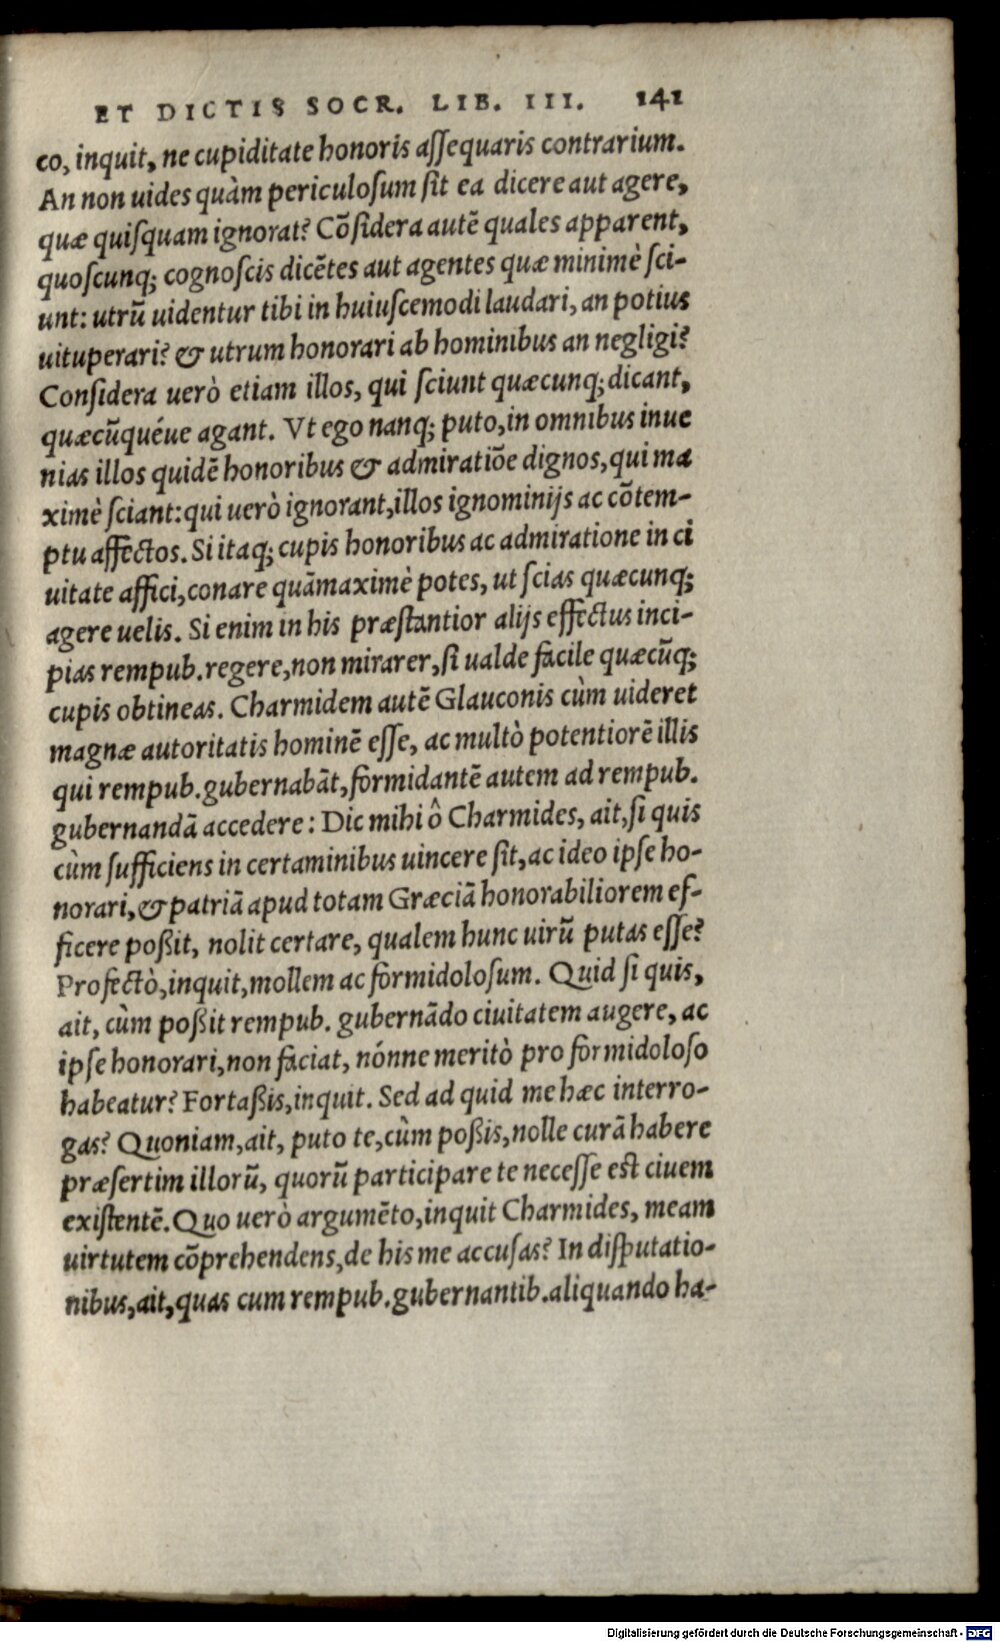 ET DICTIS SOCR. LIB. III. 141
co, inquit, ne cupiditate honoris aſſequaris contrarium.
An non uides quàm periculoſum ſit ea dicere aut agere,
quæ quiſquam ignorat? Cõſidera autẽ quales apparent,
quoſcunq; cognoſcis dicẽtes aut agentes quæ minimè ſci-
unt: utrũ uidentur tibi in huiuſcemodi laudari, an potius
uituperari? & utrum honorari ab hominibus an negligi?
Conſidera uerò etiam illos, qui ſciunt quæcunq; dicant,
quæcũquéue agant. Vt ego nanq; puto, in omnibus inue
nias illos quidẽ honoribus & admiratiõe dignos, qui ma
ximè ſciant: qui uerò ignorant, illos ignominijs ac cõtem-
ptu affectos. Si itaq; cupis honoribus ac admiratione in ci
uitate affici, conare quãmaximè potes, ut ſcias quæcunq;
agere uelis. Si enim in his præſtantior alijs effectus inci-
pias rempub. regere, non mirarer, ſi ualde facile quæcũq;
cupis obtineas. Charmidem autẽ Glauconis cùm uideret
magnæ autoritatis hominẽ eſſe, ac multò potentiorẽ illis
qui rempub. gubernabãt, formidantẽ autem ad rempub.
gubernandã accedere: Dic mihi ô Charmides, ait, ſi quis
cùm ſufficiens in certaminibus uincere ſit, ac ideo ipſe ho-
norari, & patriã apud totam Græciã honorabiliorem ef-
ficere poßit, nolit certare, qualem hunc uirũ putas eſſe?
Profectò, inquit, mollem ac formidoloſum. Quid ſi quis,
ait, cùm poßit rempub. gubernãdo ciuitatem augere, ac
ipſe honorari, non faciat, nónne meritò pro formidoloſo
habeatur? Fortaßis, inquit. Sed ad quid me hæc interro-
gas? Quoniam, ait, puto te, cùm poßis, nolle curã habere
præſertim illorũ, quorũ participare te neceſſe eſt ciuem
exiſtentẽ. Quo uerò argumẽto, inquit Charmides, meam
uirtutem cõprehendens, de his me accuſas? In diſputatio-
nibus, ait, quas cum rempub. gubernantib. aliquando ha-
Digitalisierung gefördert durch die Deutsche Forschungsgemeinschaft - DFG